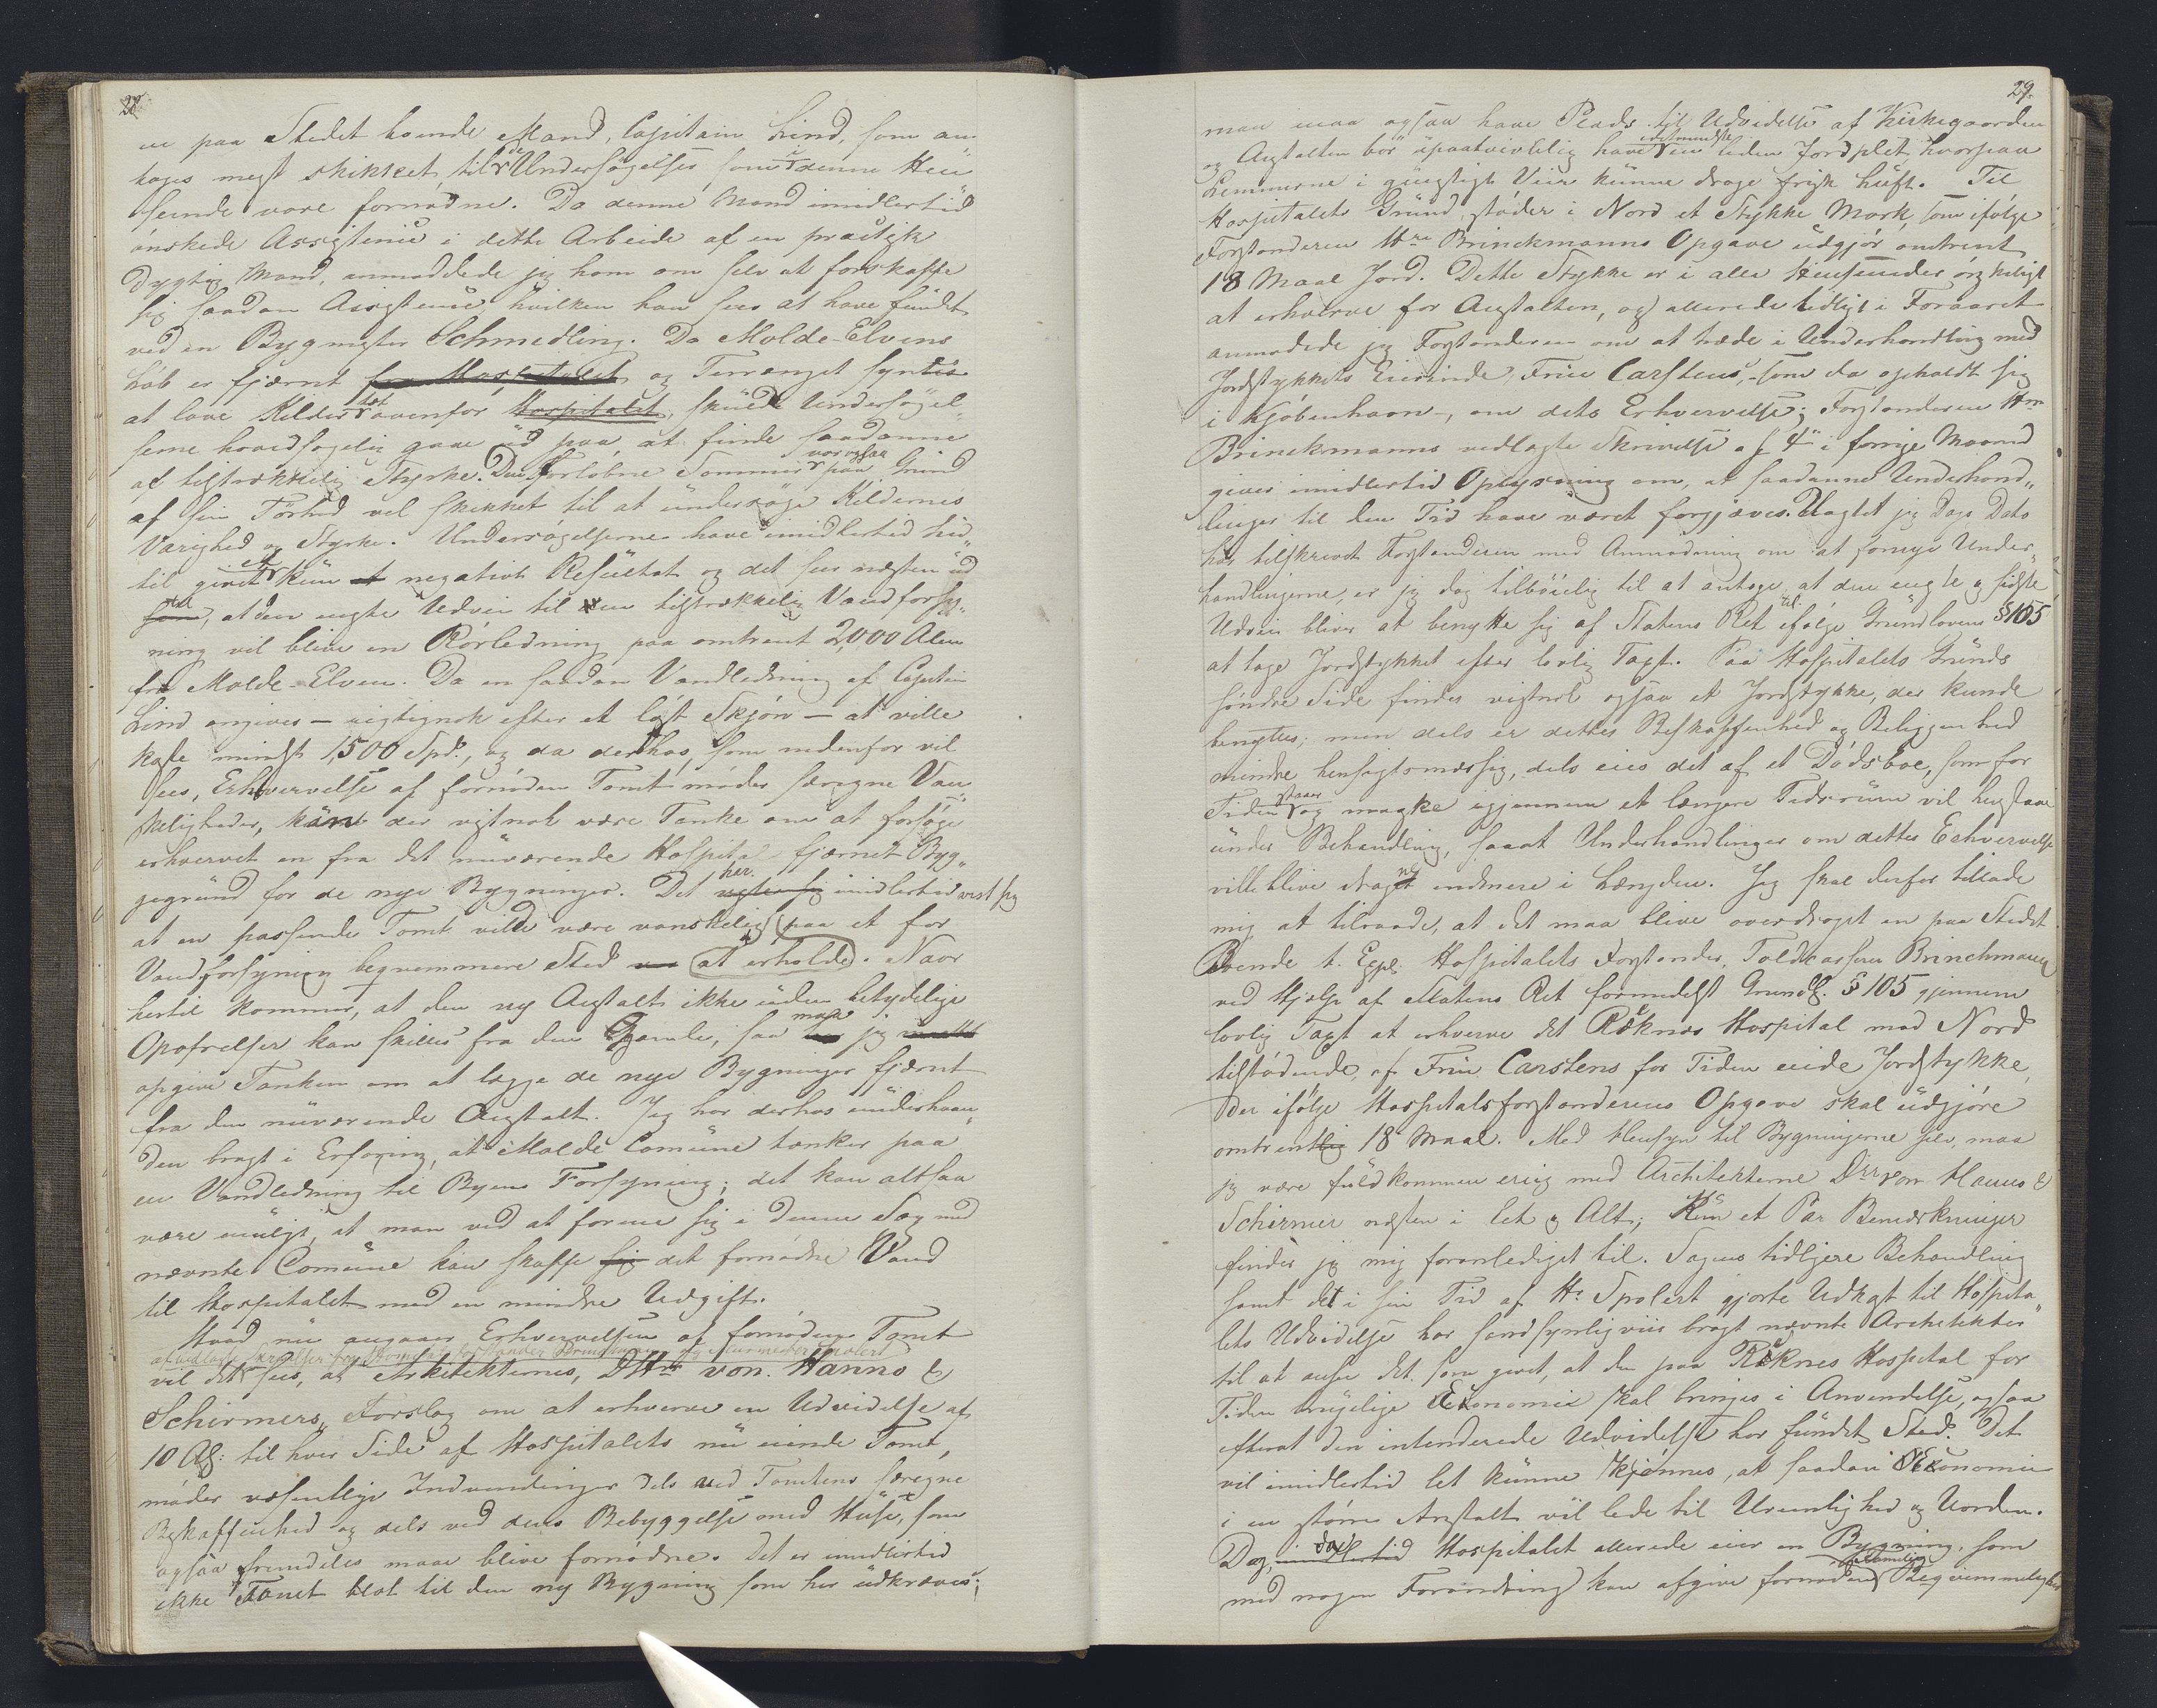 22
en paa Stedet boende Mand, Capitain Lind, som an-
toges mest skikket til de Undersøgelser som i denne Hen
seende vare fornødne. Da denne Mand imidlertid
ønskede Assistence i dette Arbeide af en practisk
dygtig Mand, anmodede jeg ham om selv at forskaffe
sig saadan Assistence, hvilken han sees at have fundet
ved en Bygmester Schmedling. Da Molde-Elvens
Løb er fjærnt fra Hospitalet og Terrænget syntes
at love Kilder tæt ovenfor Hospitalet, skulde Undersøgel„
serne hovedsagelig gaae ud paa, at finde saadanne
af tilstrækkelig Styrke. Den forløbne Sommer var ogsaa paa Grund
af sin Tørhed vel skikket til at undersøge Kildernes
Varighed og Styrke. Undersøgelserne have imidlertid hid„
til givet et kun et negativt Resultat og det sees næsten ud
til som, at den eneste Udvei til en tilstrækkelig Vandforsy„
ning vil blive en Rørledning paa omtrent 2,000 Alen
fra Molde-Elven. Da en saadan Vandledning af Capitain
Lind angives – rigtignok efter et løst Skjøn – at ville
koste mindst 1,500 Spd., og da derhos, som nedenfor vil
sees, Erhvervelse af fornøden Tomt møder særegne Van
skeligheder, kan der vistnok være Tanke om at forsøge
erhvervet en fra det nuværende Hospital fjærnet Byg„
gegrund for de nye Bygninger. Det har imidlertid vist sig
at en passende Tomt vilde være vanskelig (paa et for
Vandforsyning beqvemmere Sted at erholde). Naar
hertil kommer, at den ny Anstalt ikke uden betydelige
Opofrelser kan skilles fra den Gamle, saa maa jeg
opgive Tanken om at lægge de nye Bygninger fjærnt
fra den nuværende Anstalt. Jeg har derhos underhaan„
den bragt i Erfaring, at Molde Comune tænker paa
en Vandledning til Byens Forsyning; det kan altsaa
være muligt, at man ved at forene sig i denne Sag med
nævnte Comune kan skaffe sig det fornødne Vand
til Hospitalet med en mindre Udgift.
Hvad nu angaaer Erhvervelsen af fornøden Tomt
vil det sees, at Arkitekternes, DHrr von Hanno &
Schirmers, Forslag om at erhverve en Udvidelse af
10 Al: til hver Side af Hospitalets nu eiende Tomt,
møder væsentlige Indvendinger dels ved Tomtens særegne
Beskaffenhed og dels ved dens Bebyggelse med Huse, som
ogsaa fremdeles maae blive fornødne. Det er imidlertid
ikke Tomt blot til den ny Bygning som her udkræves;
29.
man maa ogsaa have Plads til Udvidelse af Kirkegaarden
og Anstalten bør upaatvivlelig have idetmindste en liden Jordplet hvorpaa
Lemmerne i gunstigt Veir kunne drage frisk Luft. – Til
Hospitalets Grund støder i Nord et Stykke Mark, som ifølge
Forstanderen Hrr Brinckmanns Opgave udgjør omtrent
18 Maal Jord. Dette Stykke er i alle Henseender ønskeligt
at erhverve for Anstalten, og allerede tidligt i Foraaret
anmodede jeg Forstanderen om at træde i Underhandling med
Jordstykkets Eierinde, Frue Carstens, – som da opholdt sig
i Kjøbenhavn –, om dets Erhvervelse; Forstanderen Hrr
Brinckmanns vedlagte Skrivelse af 4de i forrige Maaned
giver imidlertid Oplysning om, at saadanne Underhand„
linger til den Tid have været forgjæves. Uagtet jeg Dags Dato
har tilskrevet Forstanderen med Anmodning om at fornye Under„
handlingerne, er jeg dog tilbøielig til at antage, at den eneste og sidste
Udvei bliver at benytte sig af Statens Ret til ifølge Grundlovens §105
at tage Jordstykket efter lovlig Taxt. Paa Hospitalets Grunds
søndre Side findes vistnok ogsaa et Jordstykke, der kunde
benyttes; men dels er dettes Beskaffenhed og Beliggenhed
mindre hensigtsmæssig, dels eies det af et Dødsboe, som for
Tiden staaer og maaske igjennem et længere Tidsrum vil henstaae
under Behandling, saaat Underhandlinger om dettes Erhvervelse
ville blive dragne endmere i Længden. Jeg skal derfor tillade
mig at tilraade, at det maa blive overdraget en paa Stedet
Boende t. Expl. Hospitalets Forstander, Toldkasserer Brinchmann
ved Hjælp af Statens Ret formedelst Grundl. § 105 gjennem
lovlig Taxt at erhverve det Reknes Hospital mod Nord
tilstødende, af Frue Carstens for Tiden eiede Jordstykke,
der ifølge Hospitalsforstanderens Opgave skal udgjøre
omtrentlig 18 Maal. Med Hensyn til Bygningerne selv, maa
jeg være fuldkommen enig med Architekterne DHrr von Hanno &
Schirmer næsten i Et og Alt; Kun et Par Bemærkninger
finder jeg mig foranlediget til. Sagens tidligere Behandling
samt det i sin Tid af Hr. Spolert gjorte Udkast til Hospita„
lets Udvidelse har sandsynligviis bragt nævnte Architekter
til at ansee det som givet, at den paa Reknes Hospital for
Tiden brugelige Økonomie skal bringes i Anvendelse, ogsaa
efterat den intenderede Udvidelse har fundet Sted. Det
vil imidlertid let kunne skjønnes, at saadan Økonomie
i en større Anstalt vil lede til Ureenlighed og Uorden.
Dog, da imidlertid Hospitalet allerede eier en Bygning, som
med nogen Forandring kan afgive fornøden Beqvemmelighed